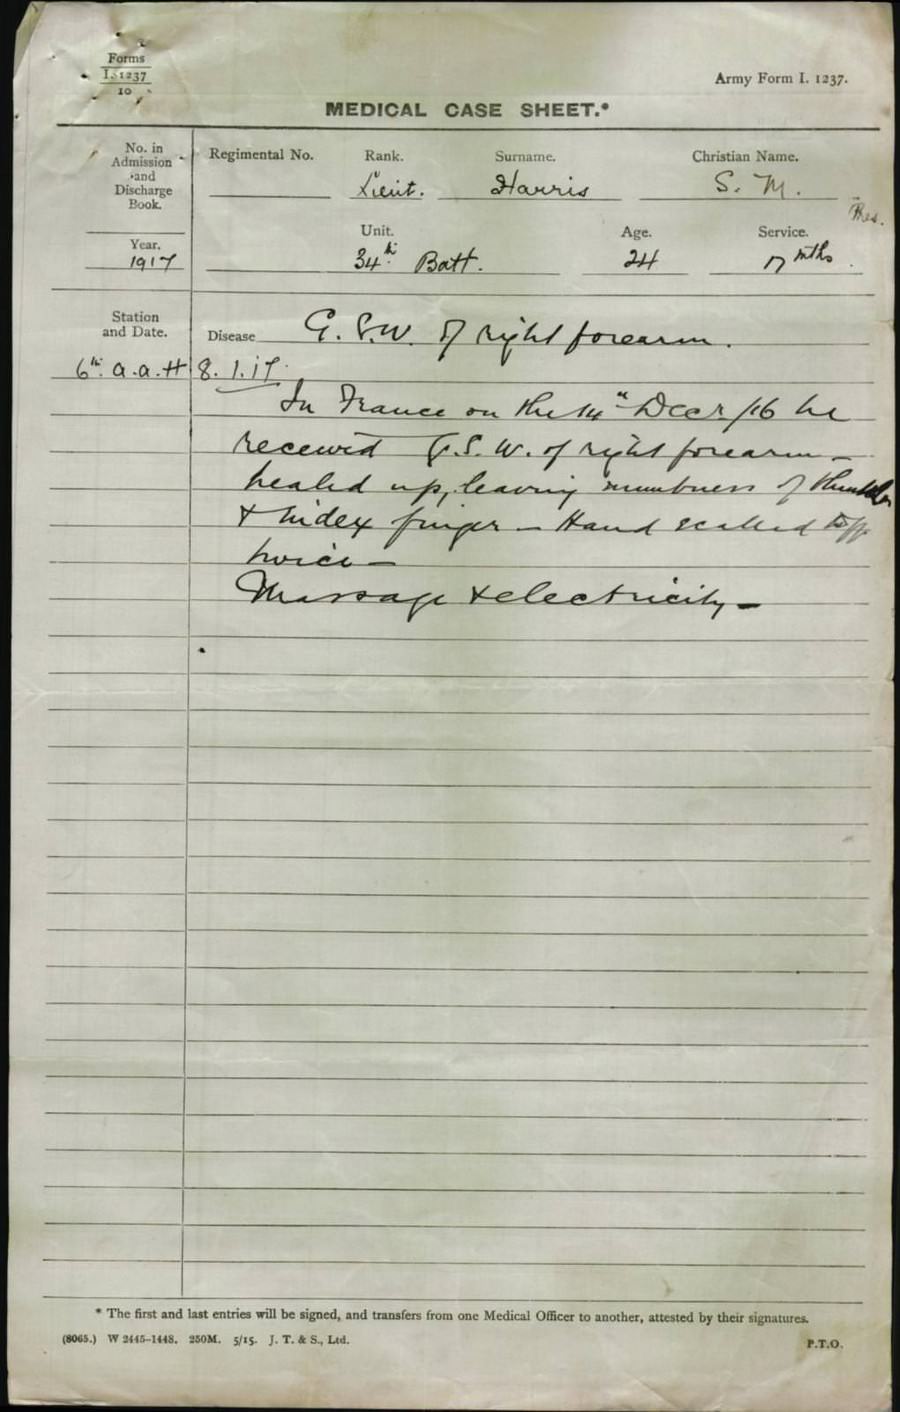 Forms
I. 1237
10
Army Form I. 1237.
MEDICAL CASE SHEET.*
No. in Admission and Discharge Book.
Regimental No. Rank. Surname. Christian Name.
Lieut. Harris S. M.
Year.
1917
Unit. Age. Service.
34th Batt. 24 mths
Station and Date.
Disease G.S.W. of right forearm.
6th. A.A.H 8.1.17
In France on the 14th Decr/16 he
received G.S.W. of right forearm -
healed up, leaving numbness of thumb
& index finger - Hand scalded
twice -
Massage & electricity -
* The first and last entries will be signed, and transfers from one Medical Officer to another, attested by their signatures.
(8065.) W 2445-1448. 250M. 5/15. J. T. & S., Ltd.
P.T.O.